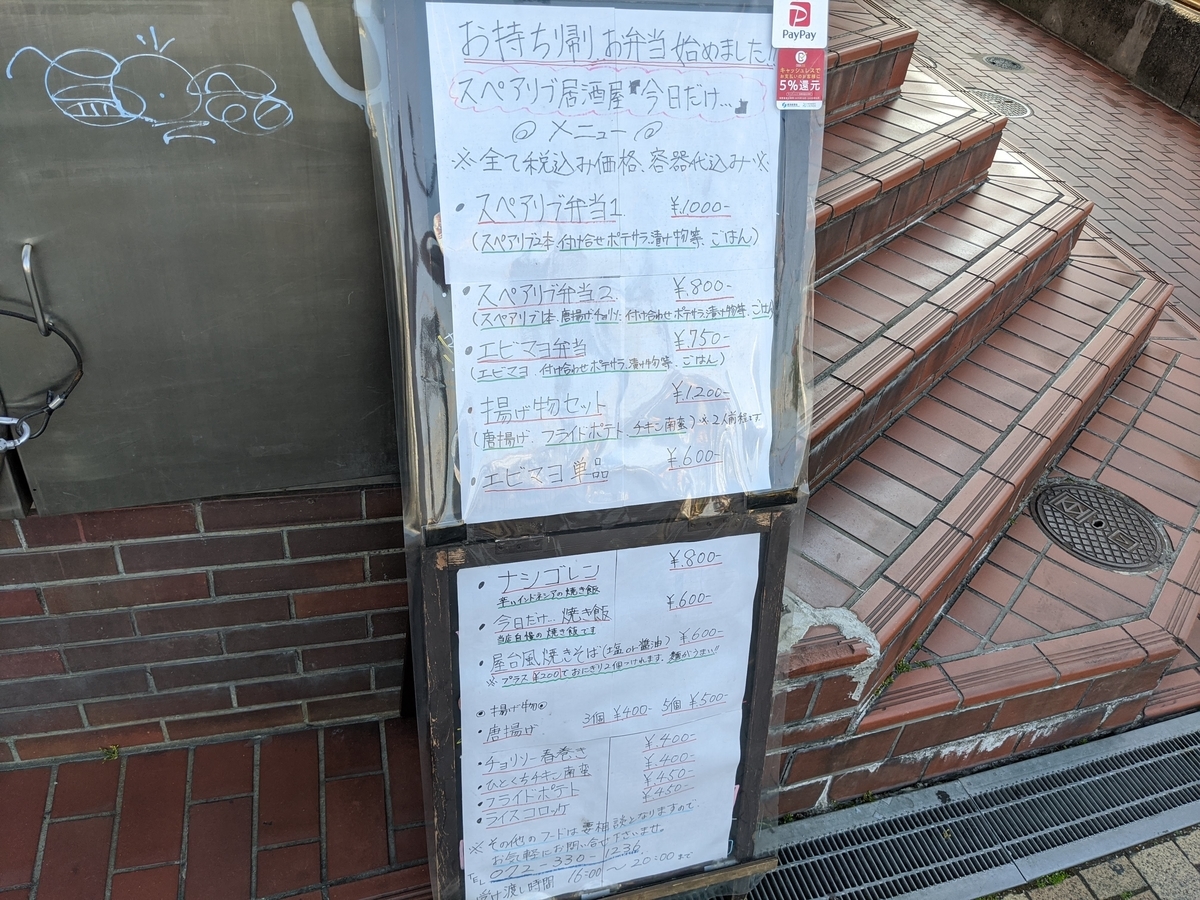 お持ち帰りお弁当始めました!
スペアリブ居酒屋 今日だけ...
◎メニュー◎
※全て税込み価格、容器代込み※
・スペアリブ弁当1 ¥1000-
(スペアリブ2本、付け合せポテサラ、漬け物等、ごはん)
・スペアリブ弁当2 ¥800-
(スペアリブ1本、唐揚げ、チョリソー、付け合わせポテサラ、漬け物等、ごはん)
・エビマヨ弁当 ¥750-
(エビマヨ、付け合わせポテサラ、漬け物等、ごはん)
・揚げ物セット ¥1200-
(唐揚げ、フライドポテト、チキン南蛮)※2人前程です
・エビマヨ単品 ¥600-
・ナシゴレン ¥800-
辛いインドネシアの焼き飯
・今日だけ...焼き飯 ¥600-
当店自慢の焼き飯です
・屋台風焼きそば(塩or醤油) ¥600-
※プラス¥200でおにぎり2個つけれます。麺がうまい!!
◎揚げ物◎
・唐揚げ 3個 ¥400- 5個 ¥500-
・チョリソー春巻き ¥400-
・ひとくちチキン南蛮 ¥400-
・フライドポテト ¥450-
・ライスコロッケ ¥450-
※その他のフードは要相談となりますので、
お気軽にお問い合せ下さいませ。
TEL 072-330-1236
受け渡し時間 16:00〜20:00まで
PayPay
キャッシュレスで
5%還元